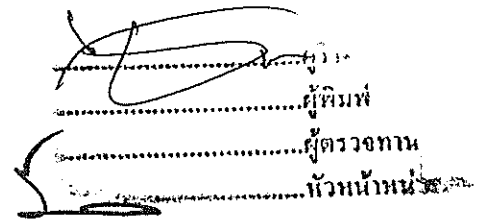 ผู้ร่าง
ผู้พิมพ์
ผู้ตรวจทาน
หัวหน้าหน่วย